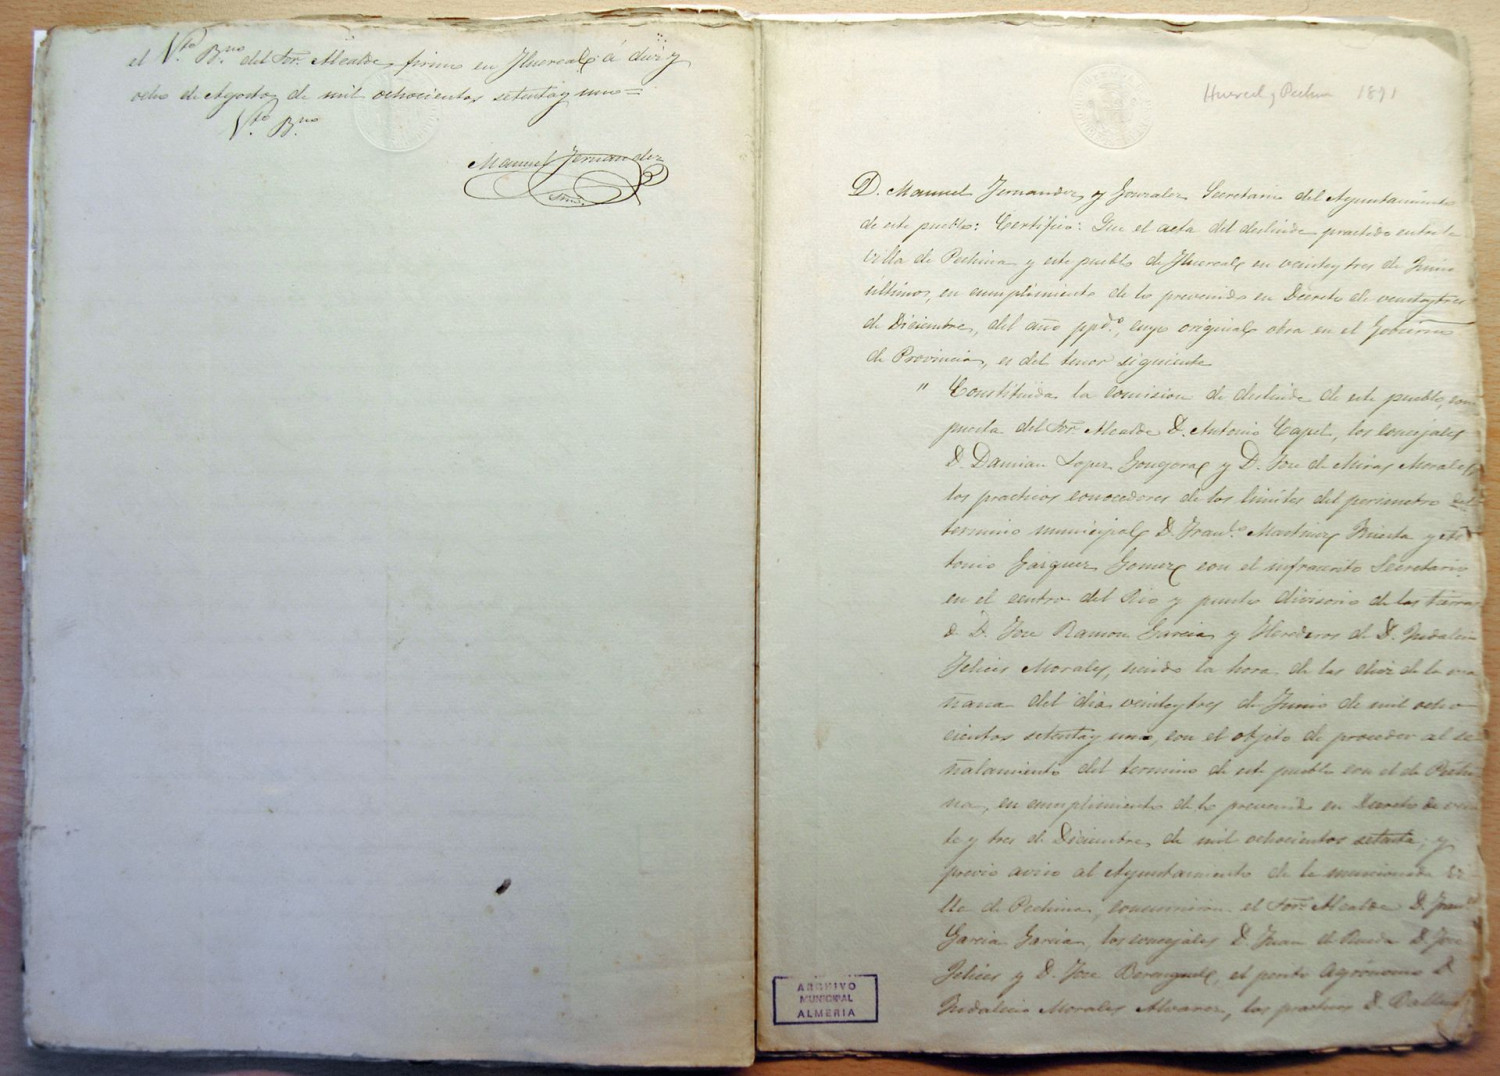 el Vto. Bno. del Sor. Alcalde, firmo en Huercal á diez y
ocho de Agosto de mil ochocientos setenta y uno=
Vto. Bno.
Manuel Fernandez
Srio.
Huercal y Pechina 1871
D. Manuel Fernandez y Gonzalez Secretario del Ayuntamiento
de este pueblo: Certifico: Que el acta del deslinde practido entre la
villa de Pechina y este pueblo de Huercal en veinte y tres de Junio
último, en cumplimiento de lo prevenido en Decreto de veinte y tres
de Diciembre, del año ppdo., cuyo original obra en el Gobierno
de Provincia, es del tenor siguiente
" Constituida la comision de deslinde de este pueblo, com
puesta del Sor. Alcalde D. Antonio Capel, los concejales
D. Damian Lopez Gongora y D. Jose de Miras Morales,
los practicos conocedores de los limites del perimetro del
termino municipal D. Franco. Martinez Iniesta y An
tonio Gazquez Gomez con el infrascrito Secretario
en el centro del Rio y punto divisorio de las tierras
de D. Jose Ramon Garcia y Herederos de D. Indalecio
Felices Morales, siendo la hora de las diez de la ma
ñana del dia veinte y tres de Junio de mil ocho
cientos setenta y uno, con el objeto de proceder al se
ñalamiento del termino de este pueblo con el de Pechi
na, en cumplimiento de lo prevenido en Decreto de vein
te y tres de Diciembre de mil ochocientos setenta; y
previo aviso al Ayuntamiento de la mencionada vi-
lla de Pechina, concurrieron el Sor. Alcalde D. Franco.
Garcia Garcia, los concejales D. Juan de Rueda D. Jose
Felices y D. Jose Berenguel, el perito Agrónomo D.
Indalecio Morales Alvarez, los practicos D.
ARCHIVO
MUNICIPAL
ALMERIA